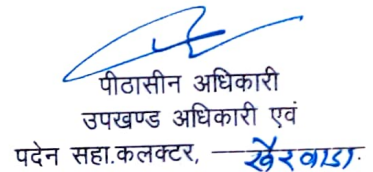 पीठासीन अधिकारी
उपखण्ड अधिकारी एवं
पदेन सहा.कलक्टर, खैरवाडा.